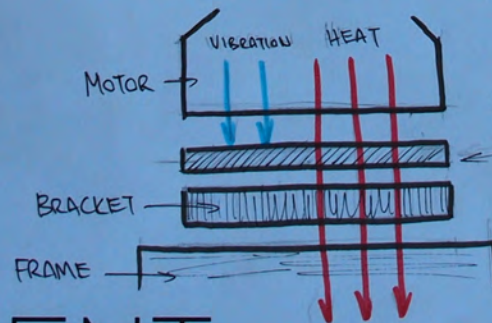 VIBRATION HEAT
MOTOR
BRACKET
FRAME